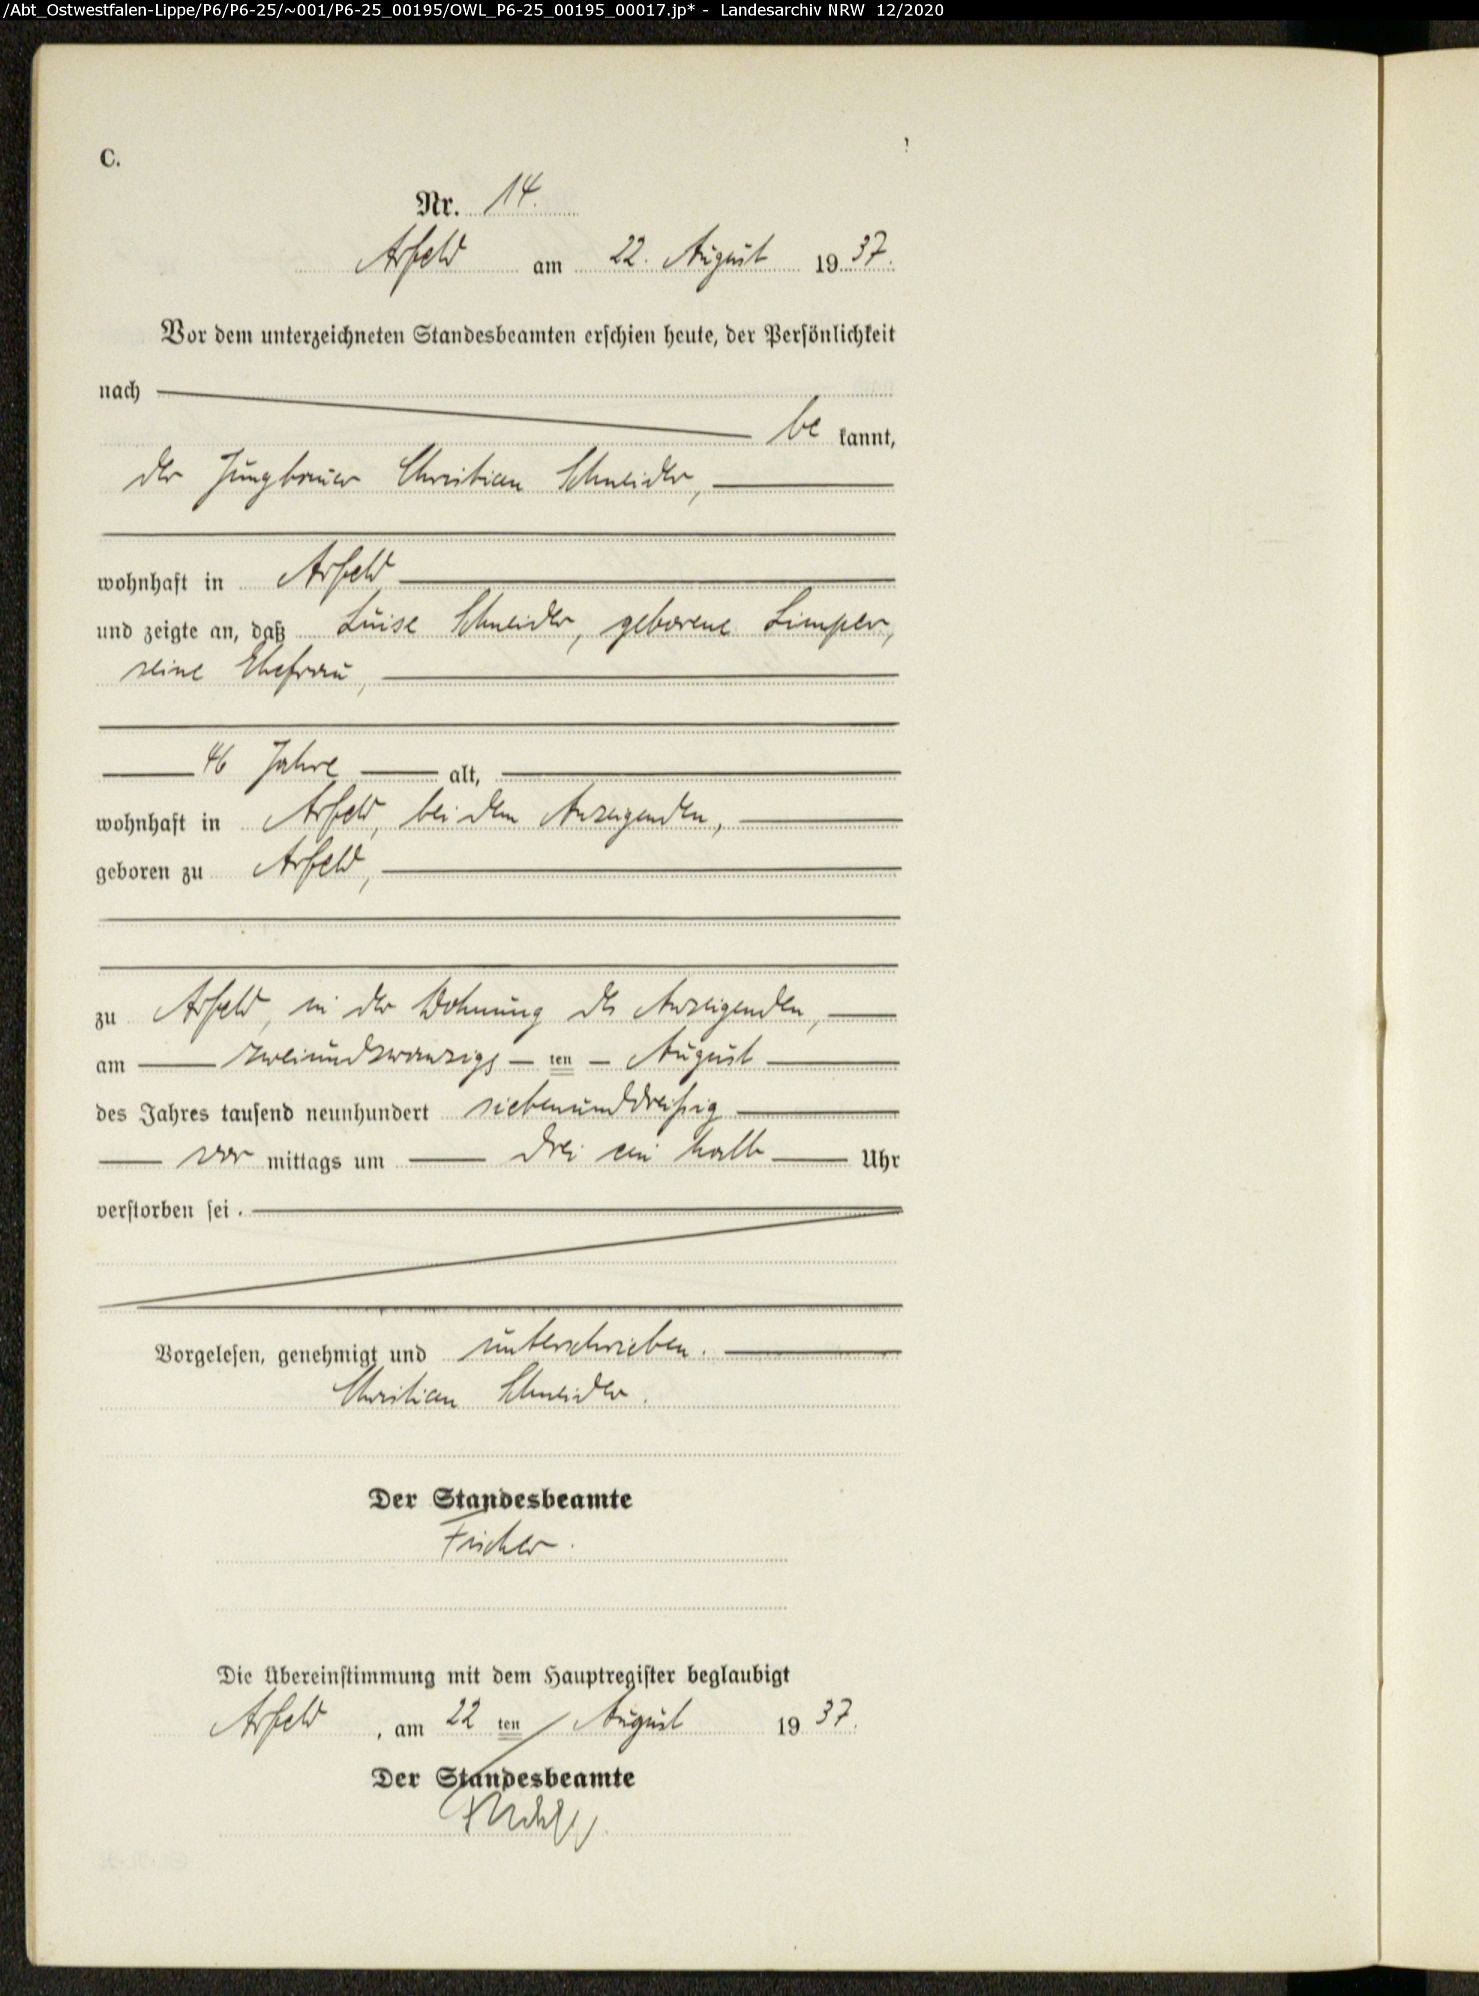 /Abt_Ostwestfalen-Lippe/P6/P6-25/~001/P6-25_00195/OWL_P6-25_00195_00017.jp* - Landesarchiv NRW 12/2020
C.
Nr. 14.
Arfeld am 22. August 1937.
Vor dem unterzeichneten Standesbeamten erschien heute, der Persönlichkeit
nach
bekannt,
der Jungbauer Christian Schneider,
wohnhaft in Arfeld
und zeigte an, daß Luise Schneider, geborene Limper,
seine Ehefrau,
46 Jahre alt,
wohnhaft in Arfeld, bei dem Anzeigenden,
geboren zu Arfeld,
zu Arfeld, in der Wohnung des Anzeigenden,
am zweiundzwanzigsten August
des Jahres tausend neunhundert siebenunddreißig
vormittags um drei ein halb Uhr
verstorben sei.
Vorgelesen, genehmigt und unterschrieben.
Christian Schneider.
Der Standesbeamte
Fischer.
Die Übereinstimmung mit dem Hauptregister beglaubigt
Arfeld, am 22ten August 1937.
Der Standesbeamte